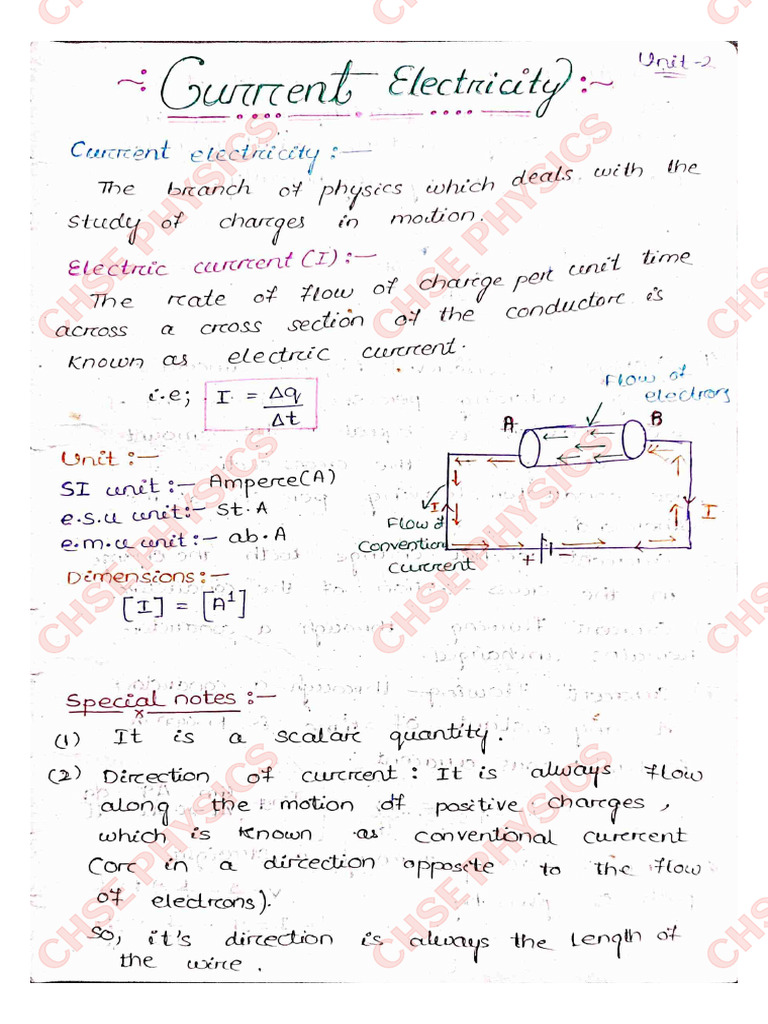 Unit-2
~: Current Electricity :~
Current electricity :—
The branch of physics which deals with the
study of charges in motion.
Electric current (I) :—
The rate of flow of charge per unit time
across a cross section of the conductor is
known as electric current.
i.e; I = Δq/Δt
Flow of
electrons
A
B
Unit :—
SI unit :— Ampere(A)
e.s.u unit:— St.A
e.m.u unit:— ab.A
I
I
Flow of
Convention
current
+
−
Dimensions :—
[I] = [A¹]
Special notes :—
(1) It is a scalar quantity.
(2) Direction of current : It is always flow
along the motion of positive charges,
which is known as conventional current
(or in a direction opposite to the flow
of electrons).
So, it's direction is always the length of
the wire.
CHSE PHYSICS
CHSE PHYSICS
CHSE PHYSICS
CHSE PHYSICS
CHSE PHYSICS
CHSE PHYSICS